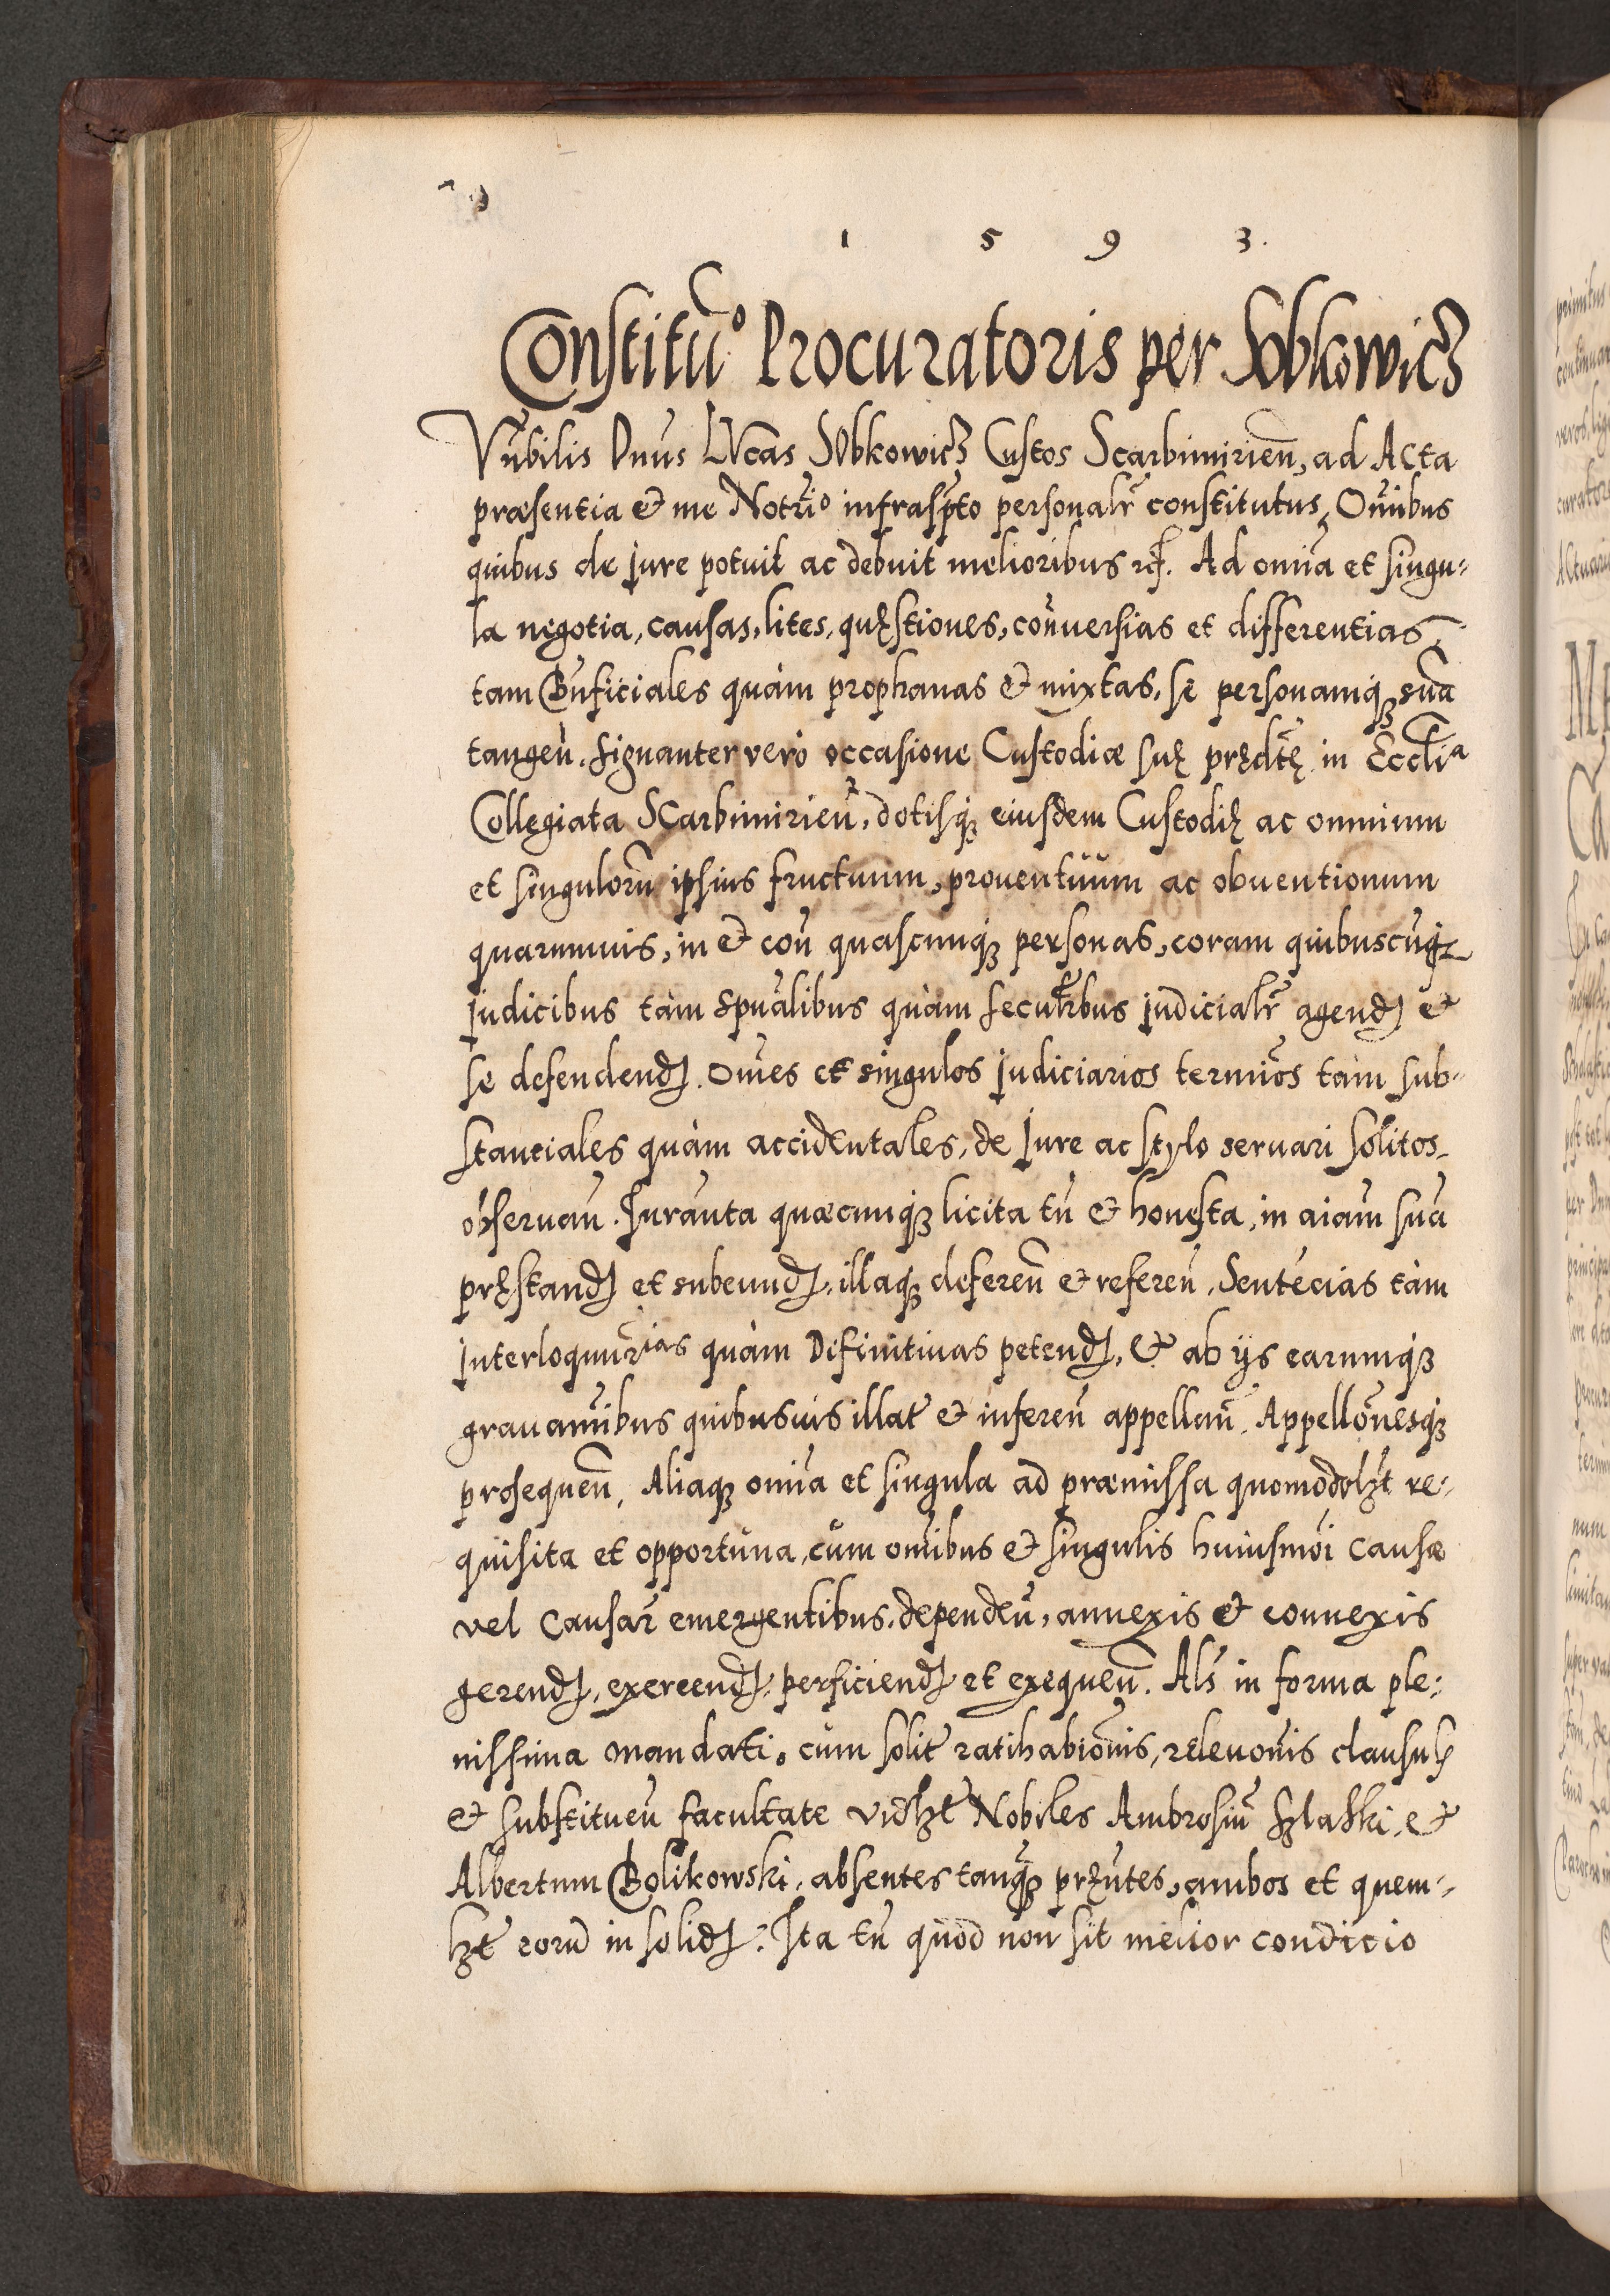 1 5 9 3.
Constitũº Procuratoris per Sobkowicz
Vn̄bilis Dnūs LVcas SObkowicz Custos Scarbimirien̄, ad Acta
præsentia et me Notr̄iº infrasp̄to personalr̄ constitutus, Om̄ibus
quibus de Jure potuit ac debuit melioribus rc̄. Ad omīa et singu-
la negotia, causas, lites, quęstiones, con̄uersias et differentias
tam Bn̄ficiales quàm prophanas et mixtas, se personamqꝫ suā
tangen̄. Signanter verò occasione Custodiæ suę prędtę in Eccliᵃ
Collegiata SCarbimirien̄, dotisqꝫ eiusdem Custodię ac omnium
et singulorū ipsius fructuum, prouentuum ac obuentionum
quarumuis, in et con̄ quascunqꝫ personas, coram quibuscūqꝫ
Judicibus tàm Spūalibus quàm secularibus Judicialr̄ agendȷ et
se defendendȷ. Om̄es et singulos Judiciarios termīos tàm sub-
stanciales quàm accidentales, de Jure ac stylo seruari solitos
obseruan̄. Juran̄ta quæcunqꝫ licita tn̄ et honesta, in aiam suā
pręstandȷ et subeundȷ, illaqꝫ deferen̄ et referen̄. Sentēcias tàm
Interloqūrias quàm Difinitiuas petendȷ, et ab ijs earumqꝫ
grauam̄ibus quibusuis illat̄ et inferen̄ appellan̄. Appellōnesqꝫ
prosequen̄, Aliaqꝫ omīa et singula ad præmissa quomodolꝫt re-
quisita et opportuna, cum om̄ibus et singulis huiusmōi causæ
vel causar̄ emergentibus, dependen̄, annexis et connexis
gerendȷ, exercendȷ, perficiendȷ et exequen̄. Als̄ in forma ple-
nissima mandati, cum solit̄ ratihabiōnis, releuōnis clausulꝭ
et substituen̄ facultate vidꝫt Nobiles Ambrosiū Szlaski, et
Albertum Bolikowski, absentes tanqꝫ pręn̄tes, ambos et quem-
lꝫt eorū in solidȷ. Ita tn̄ quòd non sit melior condicio